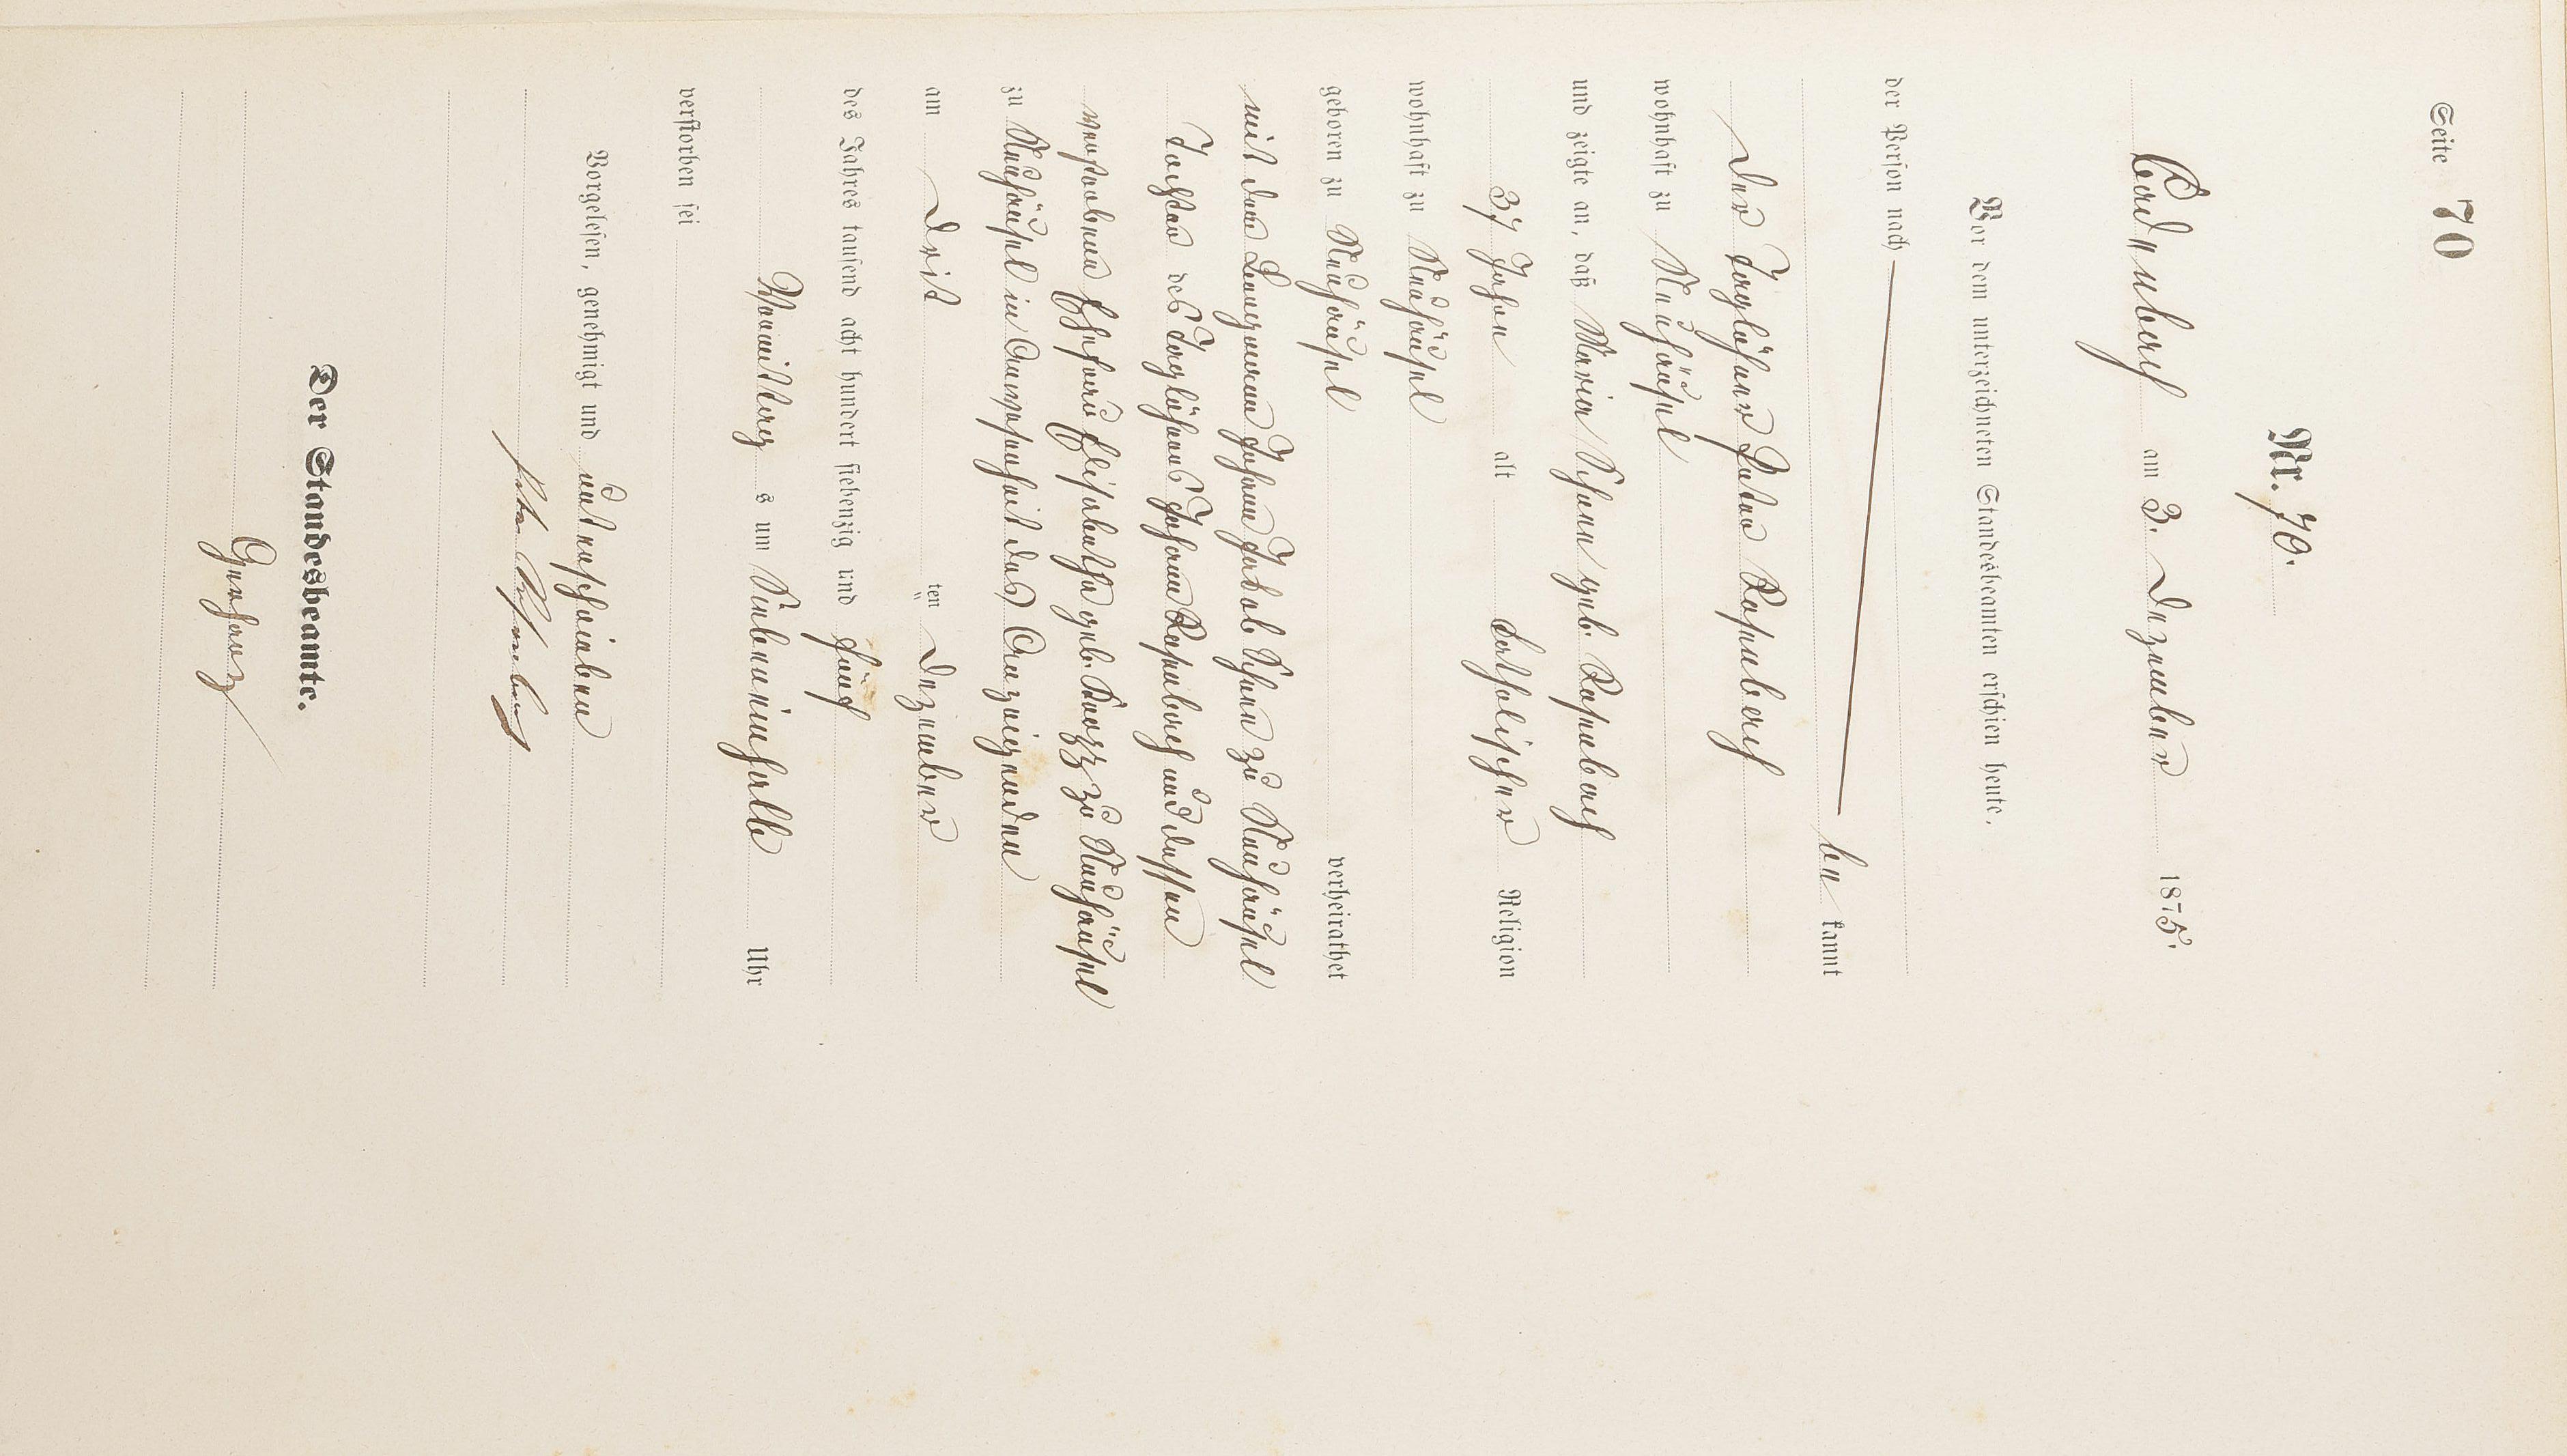 Seite 70
Nr. 70.
Cadenbach am 3. Dezember 1875.
Vor dem unterzeichneten Standesbeamten erschien heute,
der Person nach
be kannt
der Taglöhner Peter Rosenbach
wohnhaft zu Neuhäusel
und zeigte an, daß Maria Schenn geb. Rosenbach
37 Jahre alt katholischer Religion
wohnhaft zu Neuhäusel
geboren zu Neuhäusel verheirathet
mit dem Johann Jakob Schenn zu Neuhäusel
Tochter des Taglöhners Johann Rosenbach und dessen
verstorbenen Ehefrau Elisabetha geb. zu Neuhäusel
zu Neuhäusel in Anwesenheit des Anzeigenden
am dritten Dezember
des Jahres tausend acht hundert siebenzig und fünf
Vormittags um Siebeneinhalb Uhr
verstorben sei
Vorgelesen, genehmigt und unterschrieben
Peter Rosenbach
Der Standesbeamte.
Gerharz